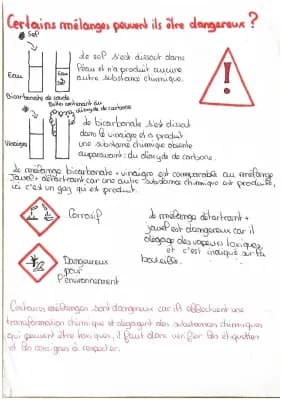 Certains mélanges peuvent ils être dangereux ?
sel
Eau
Eau
le sel s'est dissout dans
l'eau et n'a produit aucune
autre substance chimique.
Bicarbonate de soude
Ballon contenant du
dioxyde de carbone
Vinaigre
le bicarbonate s'est dissout
dans le vinaigre et a produit
une substance chimique absente
auparavant : du dioxyde de carbone.
le mélange bicarbonate + vinaigre est comparable au mélange
Javel + détartrant car une autre substance chimique est produite,
ici c'est un gaz qui est produit.
Corrosif
Dangereux
pour
l'environnement
le mélange détartrant +
javel est dangereux car il
dégage des vapeurs toxiques
et c'est indiqué sur la
bouteille.
Certains mélanges sont dangereux car ils effectuent une
transformation chimique et dégagent des substances chimiques
qui peuvent être toxiques, il faut donc vérifier les étiquettes
et les consignes à respecter.